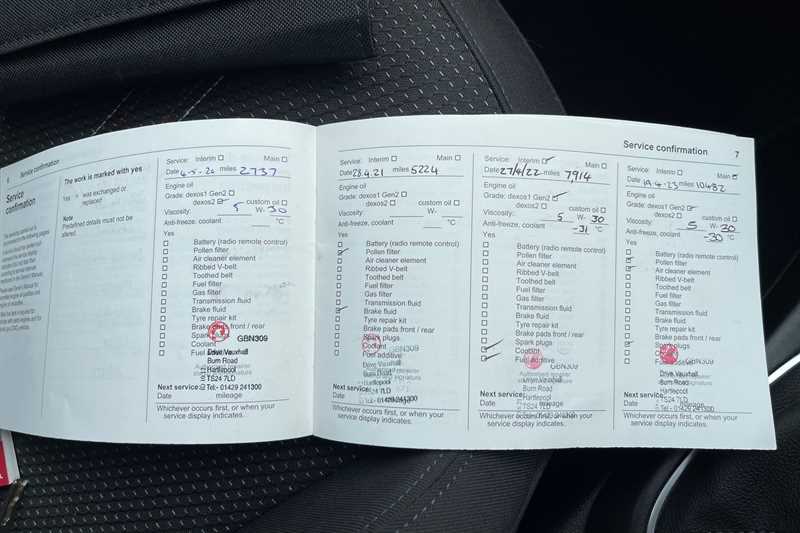 6 Service confirmation
Service
confirmation
The work is marked with yes
Yes = was exchanged or
replaced
Note
Predefined details must not be
altered.
Service: Interim ☐ Main ☐
Date 4-5-20 miles 2737
Engine oil
Grade: dexos1 Gen2 ☐
dexos2 ☑ custom oil ☐
Viscosity: 5 W- 30
Anti-freeze, coolant ___ °C
Yes
☐ Battery (radio remote control)
☐ Pollen filter
☐ Air cleaner element
☐ Ribbed V-belt
☐ Toothed belt
☐ Fuel filter
☐ Gas filter
☐ Transmission fluid
☐ Brake fluid
☐ Tyre repair kit
☐ Brake pads front / rear
☐ Spark plugs
☐ Coolant
☐ Fuel additive
GBN309
Drive Vauxhall
Burn Road
Hartlepool
TS24 7LD
Tel:- 01429 241300
Next service:
Date mileage
Whichever occurs first, or when your
service display indicates.
Service confirmation 7
Service: Interim ☐ Main ☐
Date 28.4.21 miles 5224
Engine oil
Grade: dexos1 Gen2 ☐
dexos2 ☐ custom oil ☐
Viscosity: ___ W- ___
Anti-freeze, coolant ___ °C
Yes
☐ Battery (radio remote control)
☑ Pollen filter
☐ Air cleaner element
☐ Ribbed V-belt
☐ Toothed belt
☐ Fuel filter
☐ Gas filter
☐ Transmission fluid
☑ Brake fluid
☐ Tyre repair kit
☐ Brake pads front / rear
☐ Spark plugs
☐ Coolant
☐ Fuel additive
Drive Vauxhall
Burn Road
Hartlepool
TS24 7LD
Tel:- 01429 241300
Next service:
Date
Whichever occurs first, or when your
service display indicates.
Service: Interim ☑ Main ☐
Date 27/4/22 miles 7914
Engine oil
Grade: dexos1 Gen2 ☑
dexos2 ☐ custom oil ☐
Viscosity: 5 W- 30
Anti-freeze, coolant -31 °C
Yes
☐ Battery (radio remote control)
☐ Pollen filter
☐ Air cleaner element
☐ Ribbed V-belt
☐ Toothed belt
☐ Fuel filter
☐ Gas filter
☐ Transmission fluid
☐ Brake fluid
☐ Tyre repair kit
☐ Brake pads front / rear
☐ Spark plugs
☑ Coolant
☑ Fuel additive
GBN309
Drive Vauxhall
Burn Road
Hartlepool
TS24 7LD
Next service:
Date mileage
Whichever occurs first, or when your
service display indicates.
Service: Interim ☐ Main ☑
Date 19-4-23 miles 10482
Engine oil
Grade: dexos1 Gen2 ☑
dexos2 ☐ custom oil ☐
Viscosity: 5 W- 30
Anti-freeze, coolant -30 °C
Yes
☐ Battery (radio remote control)
☑ Pollen filter
☑ Air cleaner element
☐ Ribbed V-belt
☐ Toothed belt
☐ Fuel filter
☐ Gas filter
☐ Transmission fluid
☐ Brake fluid
☐ Tyre repair kit
☐ Brake pads front / rear
☑ Spark plugs
☐ Coolant
GBN309
Drive Vauxhall
Burn Road
Hartlepool
TS24 7LD
Tel:- 01429 241300
Next service:
Date mileage
Whichever occurs first, or when your
service display indicates.